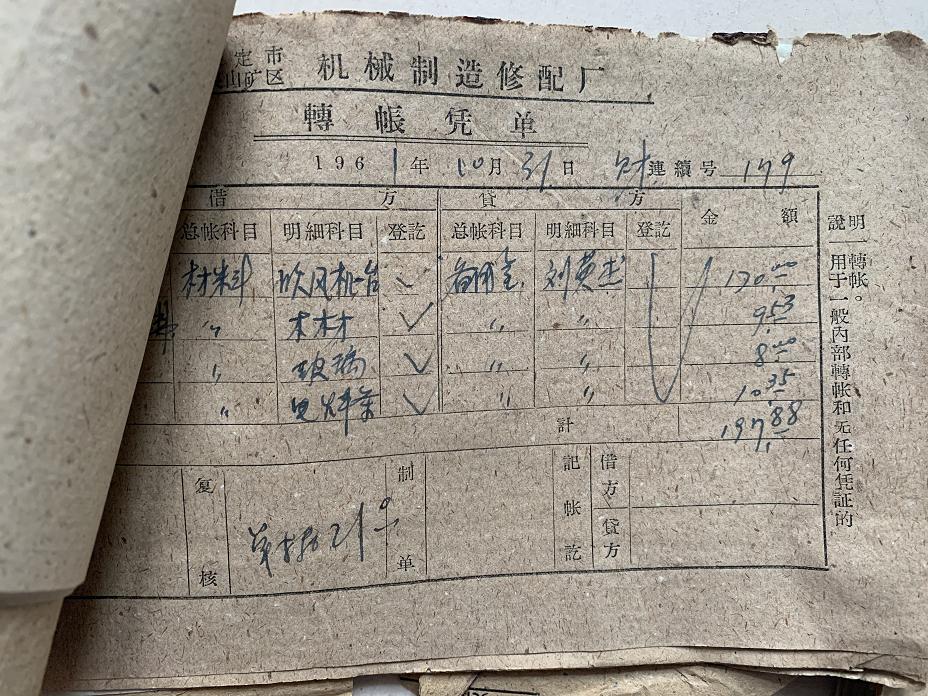 定市
山矿区 机械制造修配厂
轉帳凭单
1961年10月31日 财連續号 179
借方 貸方 金額
总帐科目 明細科目 登訖 总帐科目 明細科目 登訖
材料 吹风机一台 ✓ 备用金 刘英杰 170.00
〃 木材 ✓ 〃 〃 9.53
〃 玻璃 ✓ 〃 〃 8.00
〃 电焊条 ✓ 〃 〃 10.35
計 197.88
复核 单据21 制单 記帳訖 借方 貸方
說明
一轉帳。
用于一般內部轉帳和无任何凭証的